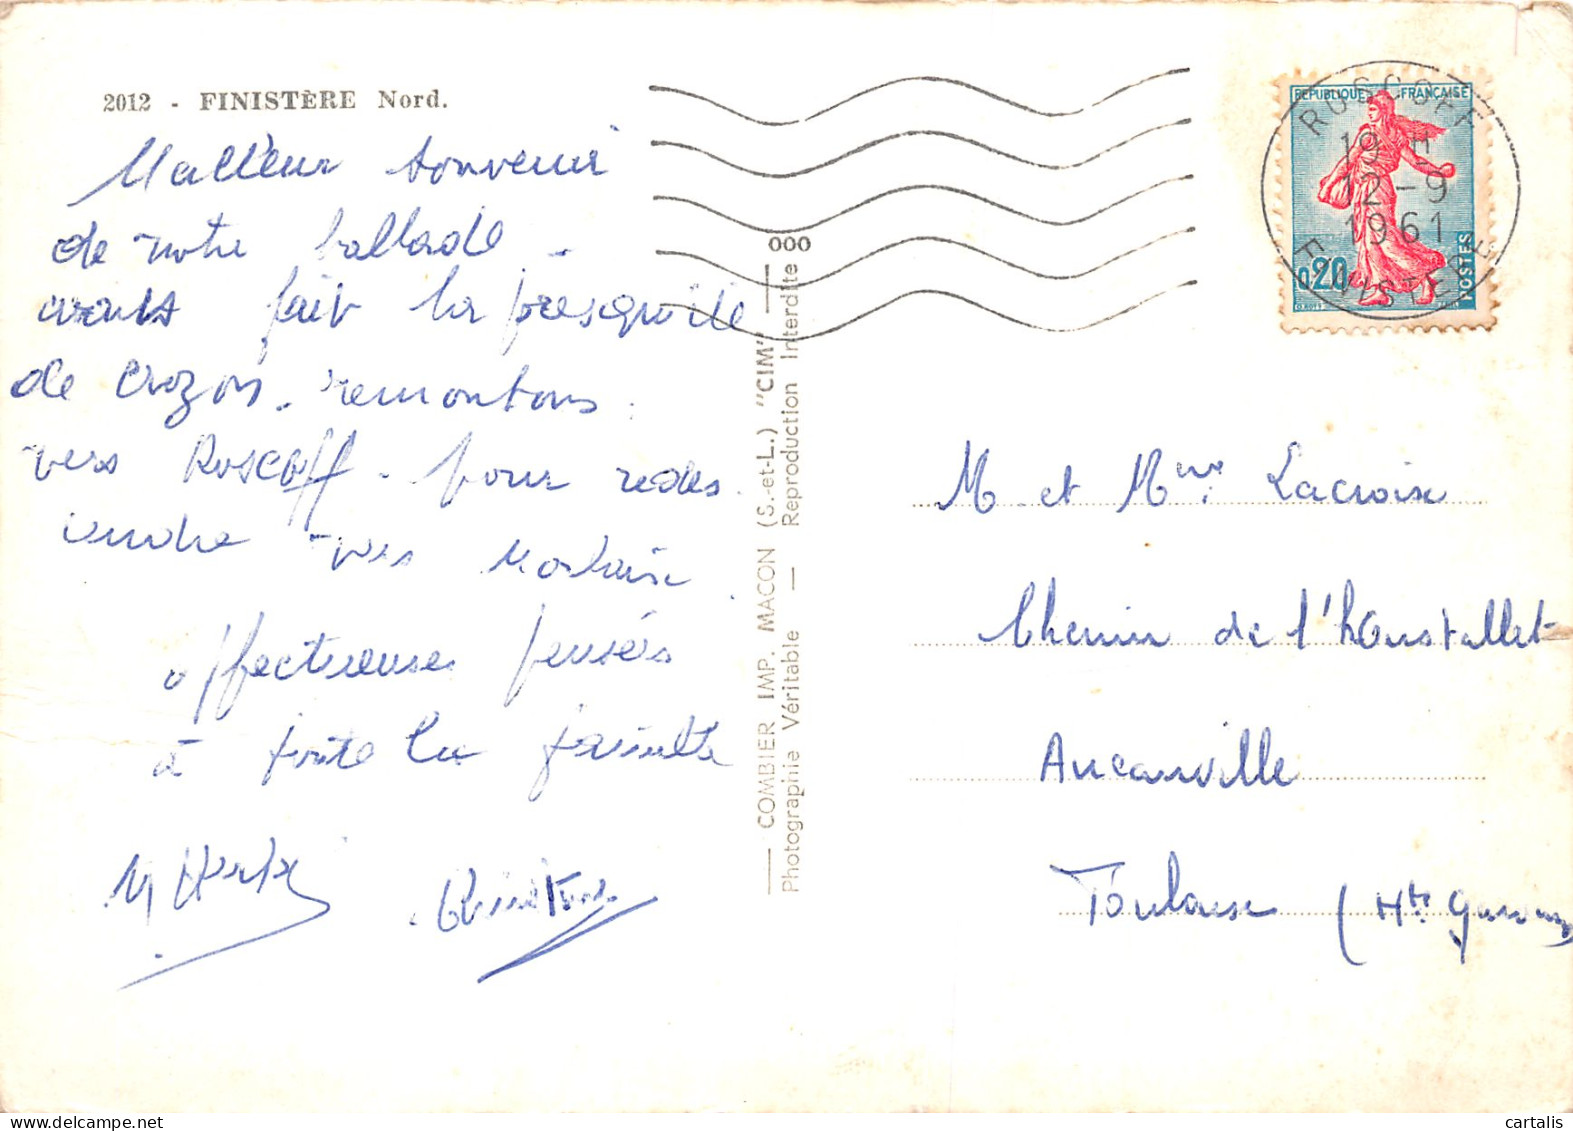 2012 - FINISTÈRE Nord.
Meilleur souvenir
de notre ballade -
avons fait la presqu'ile
de Crozon. remontons
vers Roscoff - pour redes
cendre vers Morlaix
affectueuses pensées
à toute la famille
COMBIER IMP. MACON (S.-et-L.) "CIM"
Photographie Véritable — Reproduction Interdite
000
REPUBLIQUE FRANÇAISE
0,20
POSTES
ROSCOFF
19 H
12 - 9
1961
FINISTERE
M. et Mme Lacroix
Chemin de l'houstallet
Aucamville
Toulouse (Hte Garonne
cartalis